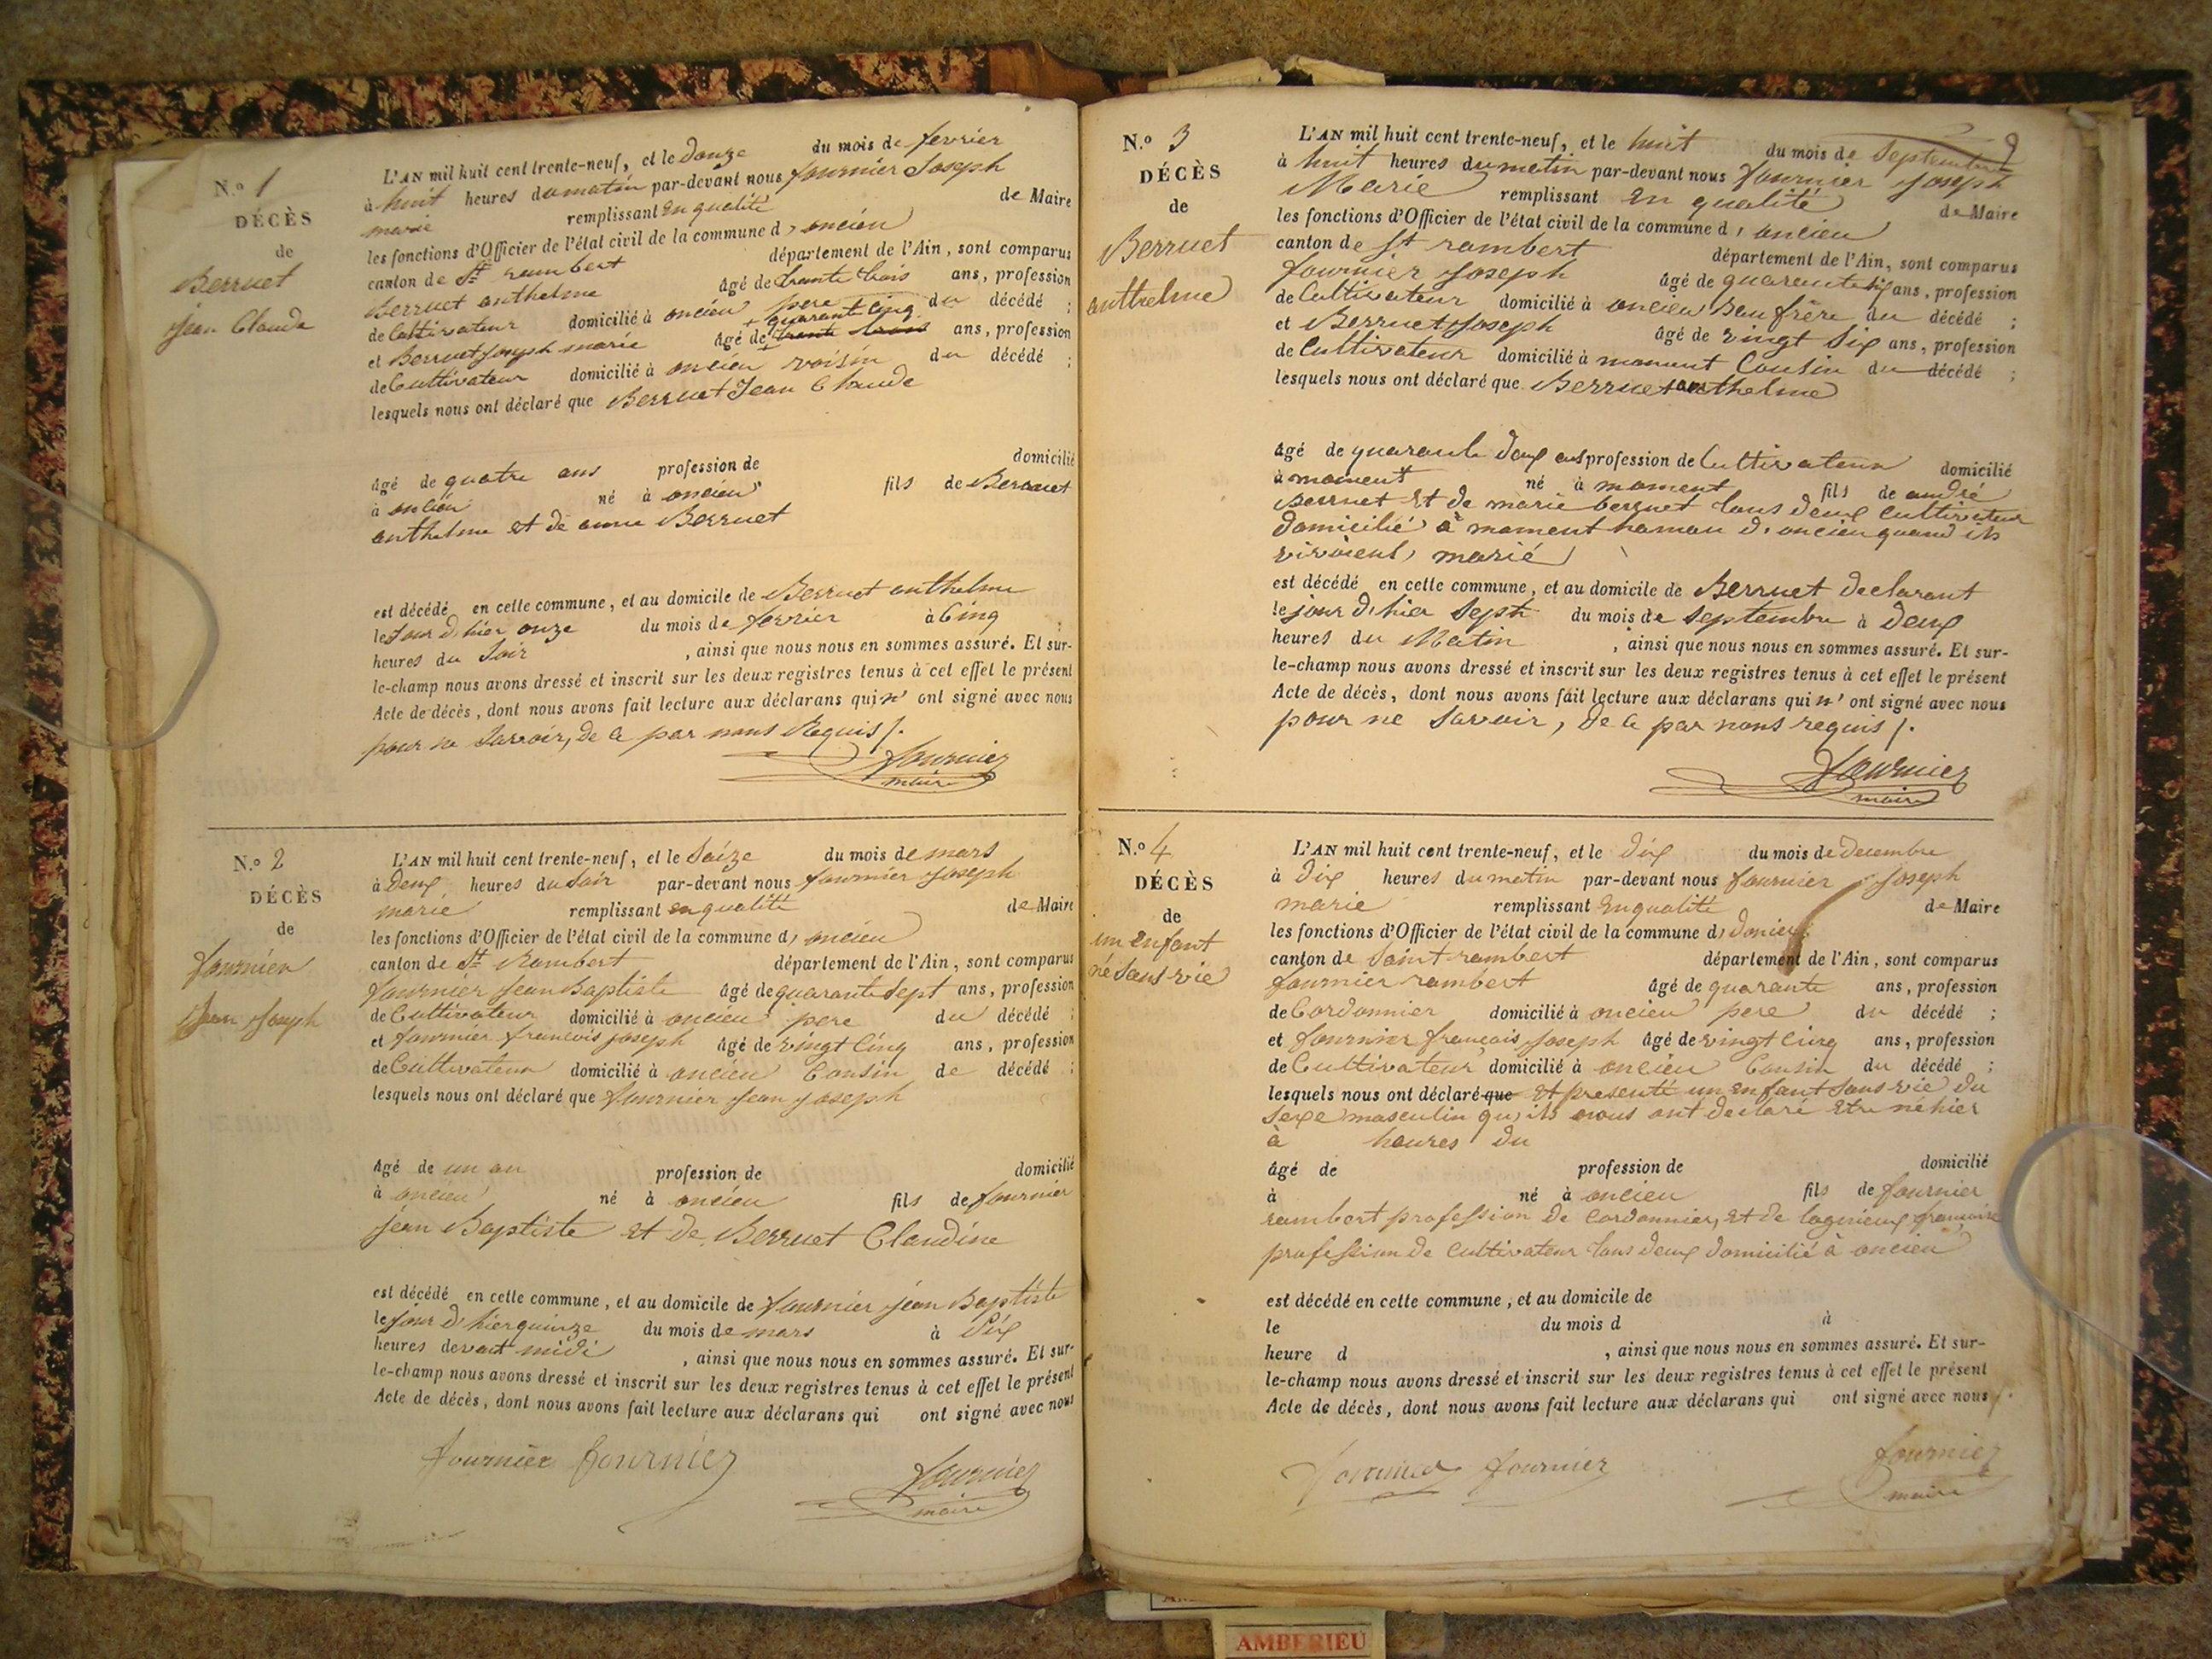 N.o 1
DÉCÈS
de
Berruet
Jean Claude
L'AN mil huit cent trente-neuf, et le douze du mois de fevrier
à huit heures du matin par-devant nous fournier Joseph
marie remplissant en qualité de Maire
les fonctions d'Officier de l'état civil de la commune d, oncieu
canton de St rambert département de l'Ain, sont comparus
Berruet anthelme âgé de trente trois ans, profession
de Cultivateur domicilié à oncieu pere du décédé ;
+ quarant cinq
et Berruet joseph marie âgé de trente trois ans, profession
de Cultivateur domicilié à oncieu voisin du décédé ;
lesquels nous ont déclaré que Berruet Jean Claude
âgé de quatre ans profession de domicilié
à oncieu né à oncieu fils de Berruet
anthelme et de anne Berruet
est décédé en cette commune, et au domicile de Berruet anthelme
le Jour d'hier onze du mois de fevrier à Cinq
heures du Soir , ainsi que nous nous en sommes assuré. Et sur-
le-champ nous avons dressé et inscrit sur les deux registres tenus à cet effet le présent
Acte de décès, dont nous avons fait lecture aux déclarans qui n' ont signé avec nous
pour ne Savoir, de ce par nous Requis /.
fournier
maire
N.o 2
DÉCÈS
de
fournier
Jean Joseph
L'AN mil huit cent trente-neuf, et le Saize du mois de mars
à Deux heures du Soir par-devant nous fournier Joseph
marie remplissant en qualité de Maire
les fonctions d'Officier de l'état civil de la commune d, oncieu
canton de St Rambert département de l'Ain, sont comparus
fournier Jean Baptiste âgé de quarante Sept ans, profession
de Cultivateur domicilié à oncieu pere du décédé ;
et fournier francois joseph âgé de vingt Cinq ans, profession
de Cultivateur domicilié à oncieu Cousin de décédé ;
lesquels nous ont déclaré que fournier Jean Joseph
âgé de un an profession de domicilié
à oncieu né à oncieu fils de fournier
jean Baptiste et de Berruet Claudine
est décédé en cette commune, et au domicile de fournier jean Baptiste
le jour d'hier quinze du mois de mars à Dix
heures devant midi , ainsi que nous nous en sommes assuré. Et sur-
le-champ nous avons dressé et inscrit sur les deux registres tenus à cet effet le présent
Acte de décès, dont nous avons fait lecture aux déclarans qui ont signé avec nous
fournier fournier fournier
maire
N.o 3
DÉCÈS
de
Berruet
anthelme
L'AN mil huit cent trente-neuf, et le huit du mois de Septembre
à huit heures du matin par-devant nous fournier Joseph
Marie remplissant en qualité de Maire
les fonctions d'Officier de l'état civil de la commune d, oncieu
canton de St rambert département de l'Ain, sont comparus
fournier Joseph âgé de quarente ans, profession
de Cultivateur domicilié à oncieu beu frère du décédé ;
et Berruet Joseph âgé de vingt Six ans, profession
de Cultivateur domicilié à moment Cousin du décédé ;
lesquels nous ont déclaré que Berruet anthelme
âgé de quarante deux ans profession de Cultivateur domicilié
à moment né à moment fils de andré
Berruet et de marie berruet tous deux cultivateur
domicilié à moment hamau d, oncieu quand ils
vivoient, marié
est décédé en cette commune, et au domicile de Berruet declarant
le jour d'hier Sept du mois de Septembre à Deux
heures du Matin , ainsi que nous nous en sommes assuré. Et sur-
le-champ nous avons dressé et inscrit sur les deux registres tenus à cet effet le présent
Acte de décès, dont nous avons fait lecture aux déclarans qui n' ont signé avec nous
pour ne Savoir, de ce par nous requis /.
fournier
maire
N.o 4
DÉCÈS
de
un enfant
né Sans vie
L'AN mil huit cent trente-neuf, et le dix du mois de decembre
à Dix heures du matin par-devant nous fournier Joseph
marie remplissant en qualité de Maire
les fonctions d'Officier de l'état civil de la commune d,
canton de Saint rambert département de l'Ain, sont comparus
fournier rambert âgé de quarante ans, profession
de Cordonnier domicilié à oncieu pere du décédé ;
et fournier françois Joseph âgé de vingt Cinq ans, profession
de Cultivateur domicilié à oncieu Cousin du décédé ;
lesquels nous ont déclaré que et presenté un enfant Sans vie du
Sexe masculin qu'ils nous ont declaré etre né hier
à heures du
âgé de profession de domicilié
à né à oncieu fils de fournier
rambert profession de Cordonnier, et de françoise
profession de Cultivateur tous deux domicilié à oncieu
est décédé en cette commune, et au domicile de
le du mois d à
heure d , ainsi que nous nous en sommes assuré. Et sur-
le-champ nous avons dressé et inscrit sur les deux registres tenus à cet effet le présent
Acte de décès, dont nous avons fait lecture aux déclarans qui ont signé avec nous /.
fournier fournier fournier
maire
AMBERIEU